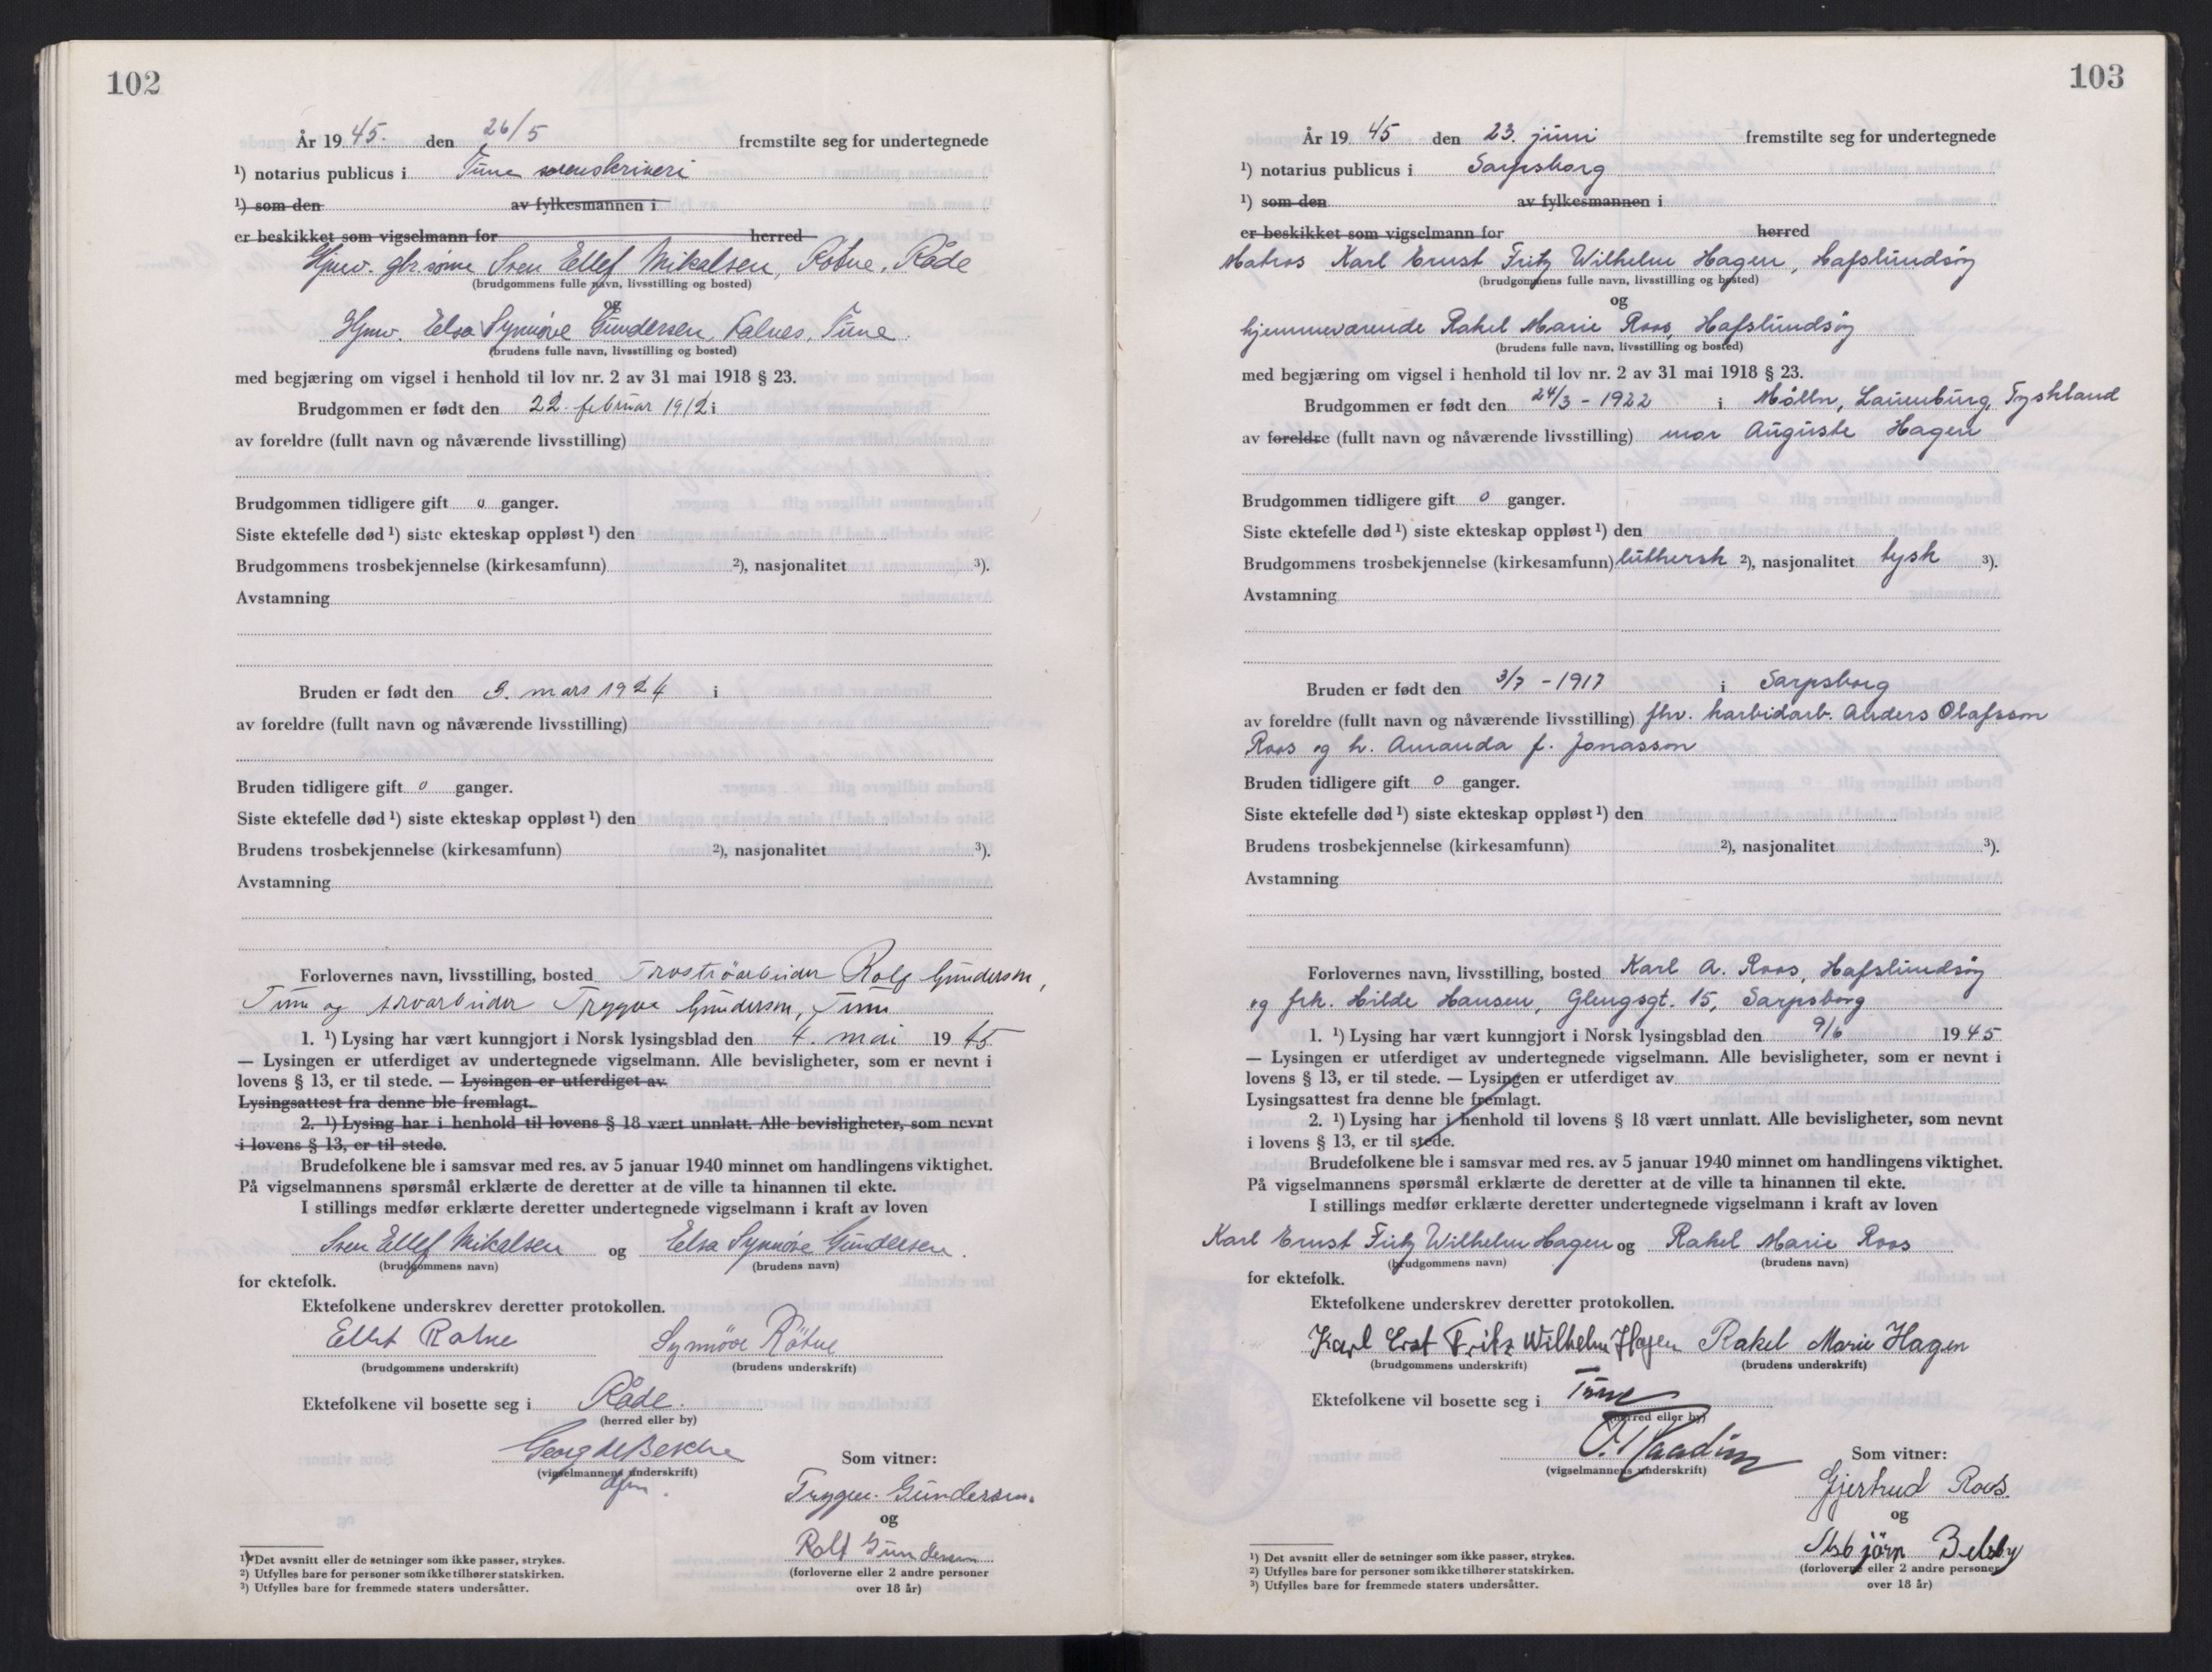 102
År 19 45. den 26/5 fremstilte seg for undertegnede
¹) notarius publicus i Tune sorenskriveri
¹) som den av fylkesmannen i
er beskikket som vigselmann for herred
Hjmv. gbr.sønn Sven Ellef Mikalsen, Røtne, Råde
(brudgommens fulle navn, livsstilling og bosted)
og
Hjmv. Elsa Synnøve Gundersen, Kalnes, Tune.
(brudens fulle navn, livsstilling og bosted)
med begjæring om vigsel i henhold til lov nr. 2 av 31 mai 1918 § 23.
Brudgommen er født den 22. februar 1912 i
av foreldre (fullt navn og nåværende livsstilling)
Brudgommen tidligere gift 0 ganger.
Siste ektefelle død ¹) siste ekteskap oppløst ¹) den
Brudgommens trosbekjennelse (kirkesamfunn) ²), nasjonalitet ³).
Avstamning
Bruden er født den 9. mars 1924 i
av foreldre (fullt navn og nåværende livsstilling)
Bruden tidligere gift 0 ganger.
Siste ektefelle død ¹) siste ekteskap oppløst ¹) den
Brudens trosbekjennelse (kirkesamfunn) ²), nasjonalitet ³).
Avstamning
Forlovernes navn, livsstilling, bosted Rolf Gundersen,
Tune og Trygve Gundersen, Tune
1. ¹) Lysing har vært kunngjort i Norsk lysingsblad den 4. mai 19 45
— Lysingen er utferdiget av undertegnede vigselmann. Alle bevisligheter, som er nevnt i
lovens § 13, er til stede. — Lysingen er utferdiget av
Lysingsattest fra denne ble fremlagt.
2. ¹) Lysing har i henhold til lovens § 18 vært unnlatt. Alle bevisligheter, som nevnt
i lovens § 13, er til stede.
Brudefolkene ble i samsvar med res. av 5 januar 1940 minnet om handlingens viktighet.
På vigselmannens spørsmål erklærte de deretter at de ville ta hinannen til ekte.
I stillings medfør erklærte deretter undertegnede vigselmann i kraft av loven
Sven Ellef Mikalsen og Elsa Synnøve Gundersen.
(brudgommens navn) (brudens navn)
for ektefolk.
Ektefolkene underskrev deretter protokollen.
Ellef Røtne Synnöve Rötne
(brudgommens underskrift) (brudens underskrift)
Ektefolkene vil bosette seg i Råde.
(herred eller by)
Georg de Besche
(vigselmannens underskrift)
Som vitner:
Trygve Gundersen.
og
Rolf Gundersen
(forloverne eller 2 andre personer
over 18 år)
¹) Det avsnitt eller de setninger som ikke passer, strykes.
²) Utfylles bare for personer som ikke tilhører statskirken.
³) Utfylles bare for fremmede staters undersåtter.
103
År 19 45 den 23. juni fremstilte seg for undertegnede
¹) notarius publicus i Sarpsborg
¹) som den av fylkesmannen i
er beskikket som vigselmann for herred
Matros Karl Ernst Fritz Wilhelm Hagen, Hafslundsøy
(brudgommens fulle navn, livsstilling og bosted)
og
hjemmeværende Rakel Marie Roos, Hafslundsøy
(brudens fulle navn, livsstilling og bosted)
med begjæring om vigsel i henhold til lov nr. 2 av 31 mai 1918 § 23.
Brudgommen er født den 24/3 - 1922 i Mölln, Lauenburg, Tyskland
av foreldre (fullt navn og nåværende livsstilling) mor Auguste Hagen
Brudgommen tidligere gift 0 ganger.
Siste ektefelle død ¹) siste ekteskap oppløst ¹) den
Brudgommens trosbekjennelse (kirkesamfunn) luthersk ²), nasjonalitet tysk ³).
Avstamning
Bruden er født den 3/7 - 1917 i Sarpsborg
av foreldre (fullt navn og nåværende livsstilling) fhv. karbidarb. Anders Olafsson
Roos og h. Amanda f. Jonasson
Bruden tidligere gift 0 ganger.
Siste ektefelle død ¹) siste ekteskap oppløst ¹) den
Brudens trosbekjennelse (kirkesamfunn) ²), nasjonalitet ³).
Avstamning
Forlovernes navn, livsstilling, bosted Karl A. Roos, Hafslundsøy
og frk. Hilde Hansen, Glengsgt. 15, Sarpsborg
1. ¹) Lysing har vært kunngjort i Norsk lysingsblad den 9/6 19 45
— Lysingen er utferdiget av undertegnede vigselmann. Alle bevisligheter, som er nevnt i
lovens § 13, er til stede. — Lysingen er utferdiget av
Lysingsattest fra denne ble fremlagt.
2. ¹) Lysing har i henhold til lovens § 18 vært unnlatt. Alle bevisligheter, som nevnt
i lovens § 13, er til stede.
Brudefolkene ble i samsvar med res. av 5 januar 1940 minnet om handlingens viktighet.
På vigselmannens spørsmål erklærte de deretter at de ville ta hinannen til ekte.
I stillings medfør erklærte deretter undertegnede vigselmann i kraft av loven
Karl Ernst Fritz Wilhelm Hagen og Rakel Marie Roos
(brudgommens navn) (brudens navn)
for ektefolk.
Ektefolkene underskrev deretter protokollen.
Karl Erst Fritz Wilhelm Hagen Rakel Marie Hagen
(brudgommens underskrift) (brudens underskrift)
Ektefolkene vil bosette seg i Tune
(herred eller by)
(vigselmannens underskrift)
Som vitner:
Gjertrud Roos.
og
Asbjörn
(forloverne eller 2 andre personer
over 18 år)
¹) Det avsnitt eller de setninger som ikke passer, strykes.
²) Utfylles bare for personer som ikke tilhører statskirken.
³) Utfylles bare for fremmede staters undersåtter.